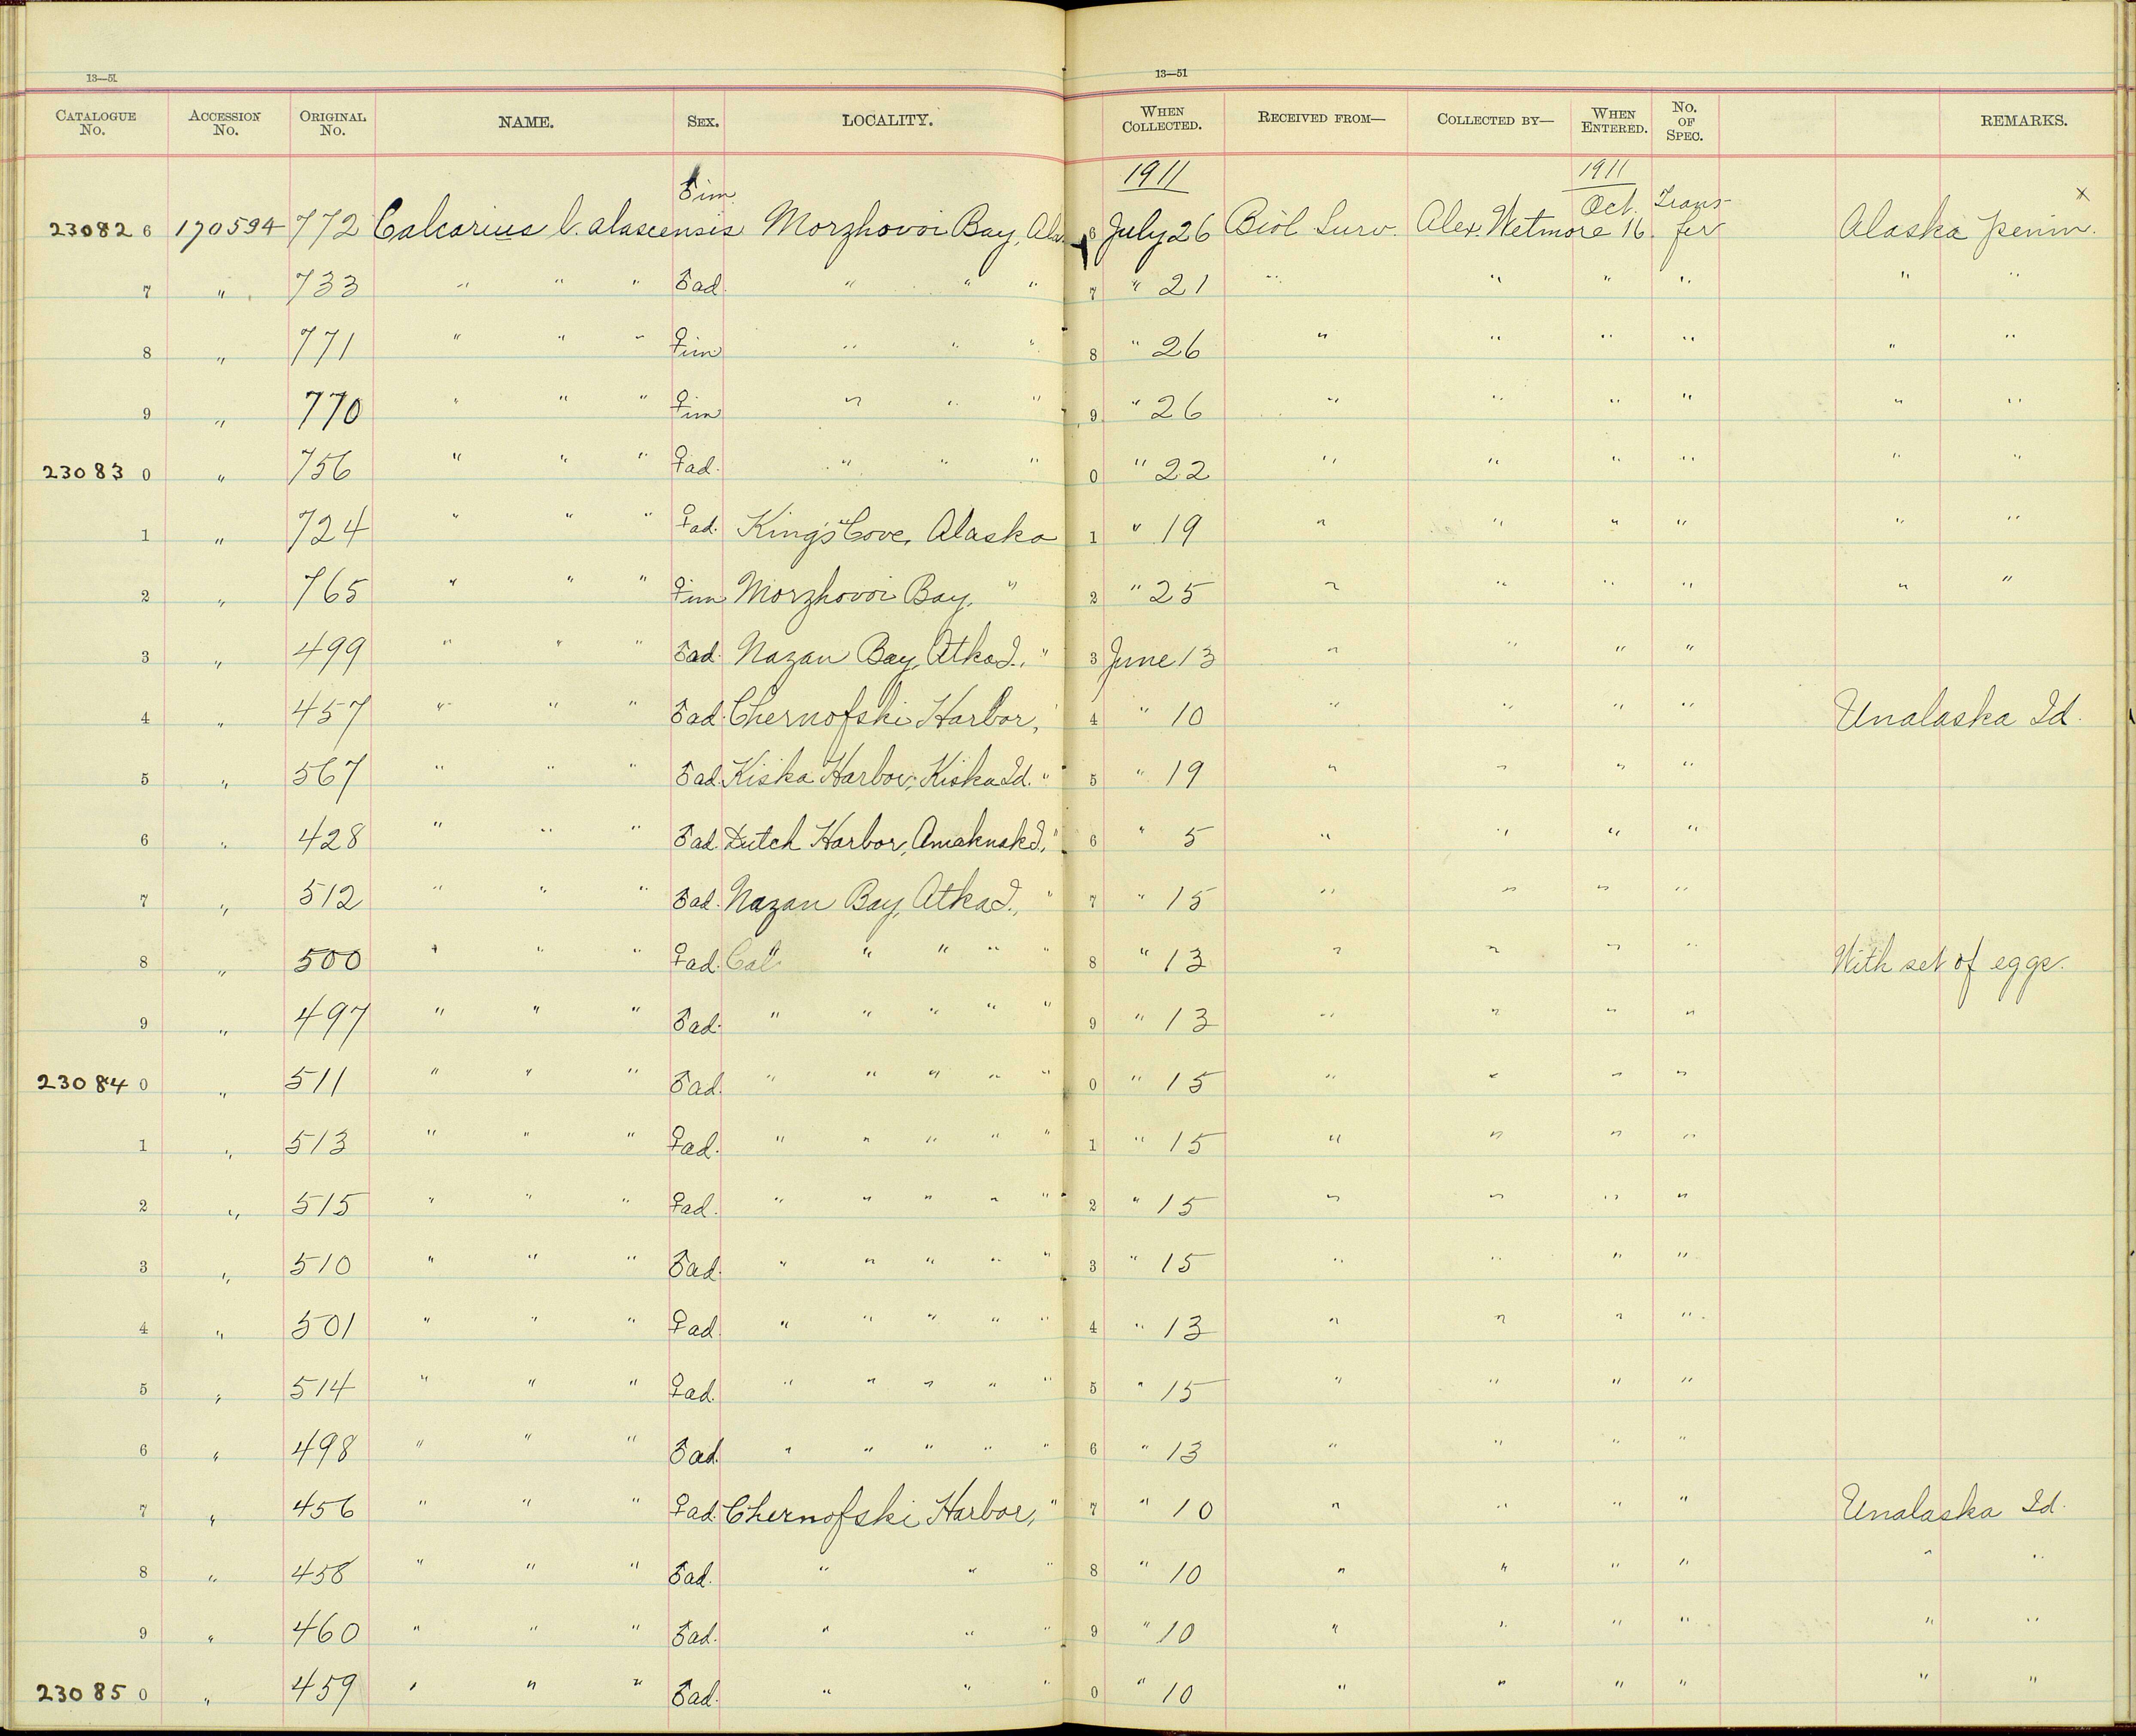 13—51 13—51
CATALOGUE No. ACCESSION No. ORIGINAL No. NAME. SEX. LOCALITY. WHEN COLLECTED. RECEIVED FROM— COLLECTED BY— WHEN ENTERED. No. OF SPEC. REMARKS.
1911 1911
23082 6 170594 772 Calcarius l. alascensis ♂ im. Morzhovoi Bay, Alas. 6 July 26 Biol. Surv. Alex. Wetmore Oct. 16. Trans- fer Alaska penin. x
7 " 733 " " " ♂ ad. " " " 7 " 21 " " " " " "
8 " 771 " " " ♀ im " " " 8 " 26 " " " " " "
9 " 770 " " " ♀ im " " " 9 " 26 " " " " " "
23083 0 " 756 " " " ♀ ad. " " " 0 " 22 " " " " " "
1 " 724 " " " ♀ ad. King's Cove, Alaska 1 " 19 " " " " " "
2 " 765 " " " ♀ im Morzhovoi Bay, " 2 " 25 " " " " " "
3 " 499 " " " ♂ ad. Nazan Bay, Atka I., " 3 June 13 " " " "
4 " 457 " " " ♂ ad. Chernofski Harbor, " 4 " 10 " " " " Unalaska Id.
5 " 567 " " " ♂ ad. Kiska Harbor, Kiska Id. " 5 " 19 " " " "
6 " 428 " " " ♂ ad. Dutch Harbor, Amaknak I., " 6 " 5 " " " "
7 " 512 " " " ♂ ad. Nazan Bay, Atka I., " 7 " 15 " " " "
8 " 500 " " " ♀ ad. " " " " " 8 " 13 " " " " With set of eggs.
9 " 497 " " " ♂ ad. " " " " " 9 " 13 " " " "
23084 0 " 511 " " " ♂ ad. " " " " " 0 " 15 " " " "
1 " 513 " " " ♀ ad. " " " " " 1 " 15 " " " "
2 " 515 " " " ♀ ad. " " " " " 2 " 15 " " " "
3 " 510 " " " ♂ ad. " " " " " 3 " 15 " " " "
4 " 501 " " " ♀ ad. " " " " " 4 " 13 " " " "
5 " 514 " " " ♀ ad. " " " " " 5 " 15 " " " "
6 " 498 " " " ♂ ad. " " " " " 6 " 13 " " " "
7 " 456 " " " ♀ ad. Chernofski Harbor, " 7 " 10 " " " " Unalaska Id.
8 " 458 " " " ♂ ad. " " " 8 " 10 " " " " " "
9 " 460 " " " ♂ ad. " " " 9 " 10 " " " " " "
23085 0 " 459 " " " ♂ ad. " " " 0 " 10 " " " " " "